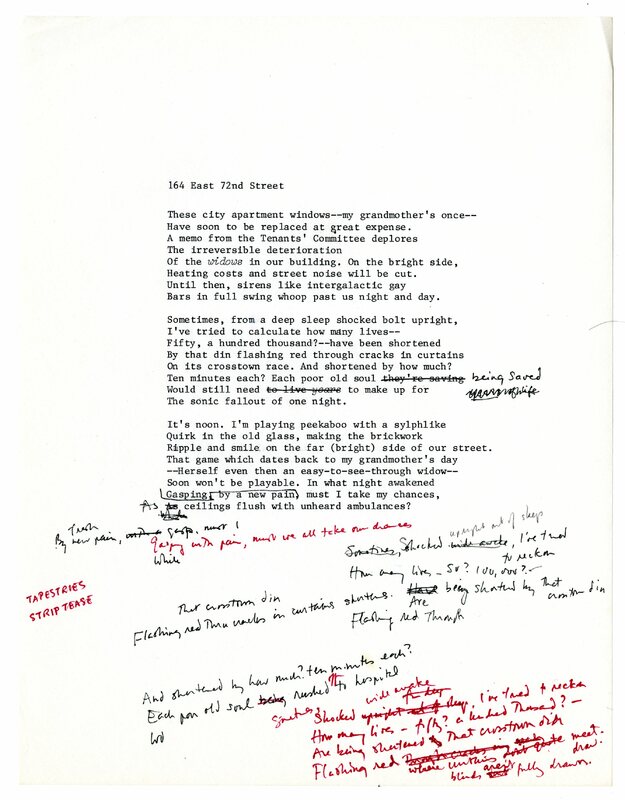 164 East 72nd Street
These city apartment windows--my grandmother's once--
Have soon to be replaced at great expense.
A memo from the Tenants' Committee deplores
The irreversible deterioration
Of the widows in our building. On the bright side,
Heating costs and street noise will be cut.
Until then, sirens like intergalactic gay
Bars in full swing whoop past us night and day.
Sometimes, from a deep sleep shocked bolt upright,
I've tried to calculate how many lives--
Fifty, a hundred thousand?--have been shortened
By that din flashing red through cracks in curtains
On its crosstown race. And shortened by how much?
Ten minutes each? Each poor old soul they're saving being saved
Would still need to live years to make up for
The sonic fallout of one night.
It's noon. I'm playing peekaboo with a sylphlike
Quirk in the old glass, making the brickwork
Ripple and smile on the far (bright) side of our street.
That game which dates back to my grandmother's day
--Herself even then an easy-to-see-through widow--
Soon won't be playable. In what night awakened
Gasping by a new pain, must I take my chances,
As ceilings flush with unheard ambulances?
While
Fresh
By new pain, with a gasp, must I
Gasping with pain, must we all take our chances
While
upright out of sleep
Sometimes, shocked wide awake, I've tried
to reckon
How many lives – 50? 100,000? –
Have being shortened by that
crosstown din
Are
Flashing red through
TAPESTRIES
STRIP TEASE
That crosstown din
Flashing red thru cracks in curtains shortens.
And shortened by how much? ten minutes each?
Each poor old soul being rushed to hospital
Wd
wide awake
Sometimes, shocked upright out of sleep, I've tried to reckon
How many lives – fifty? a hundred thousand? –
Are being shortened by that crosstown din
Flashing red through cracks
where curtains don't quite meet.
blinds aren't fully drawn.
draw.